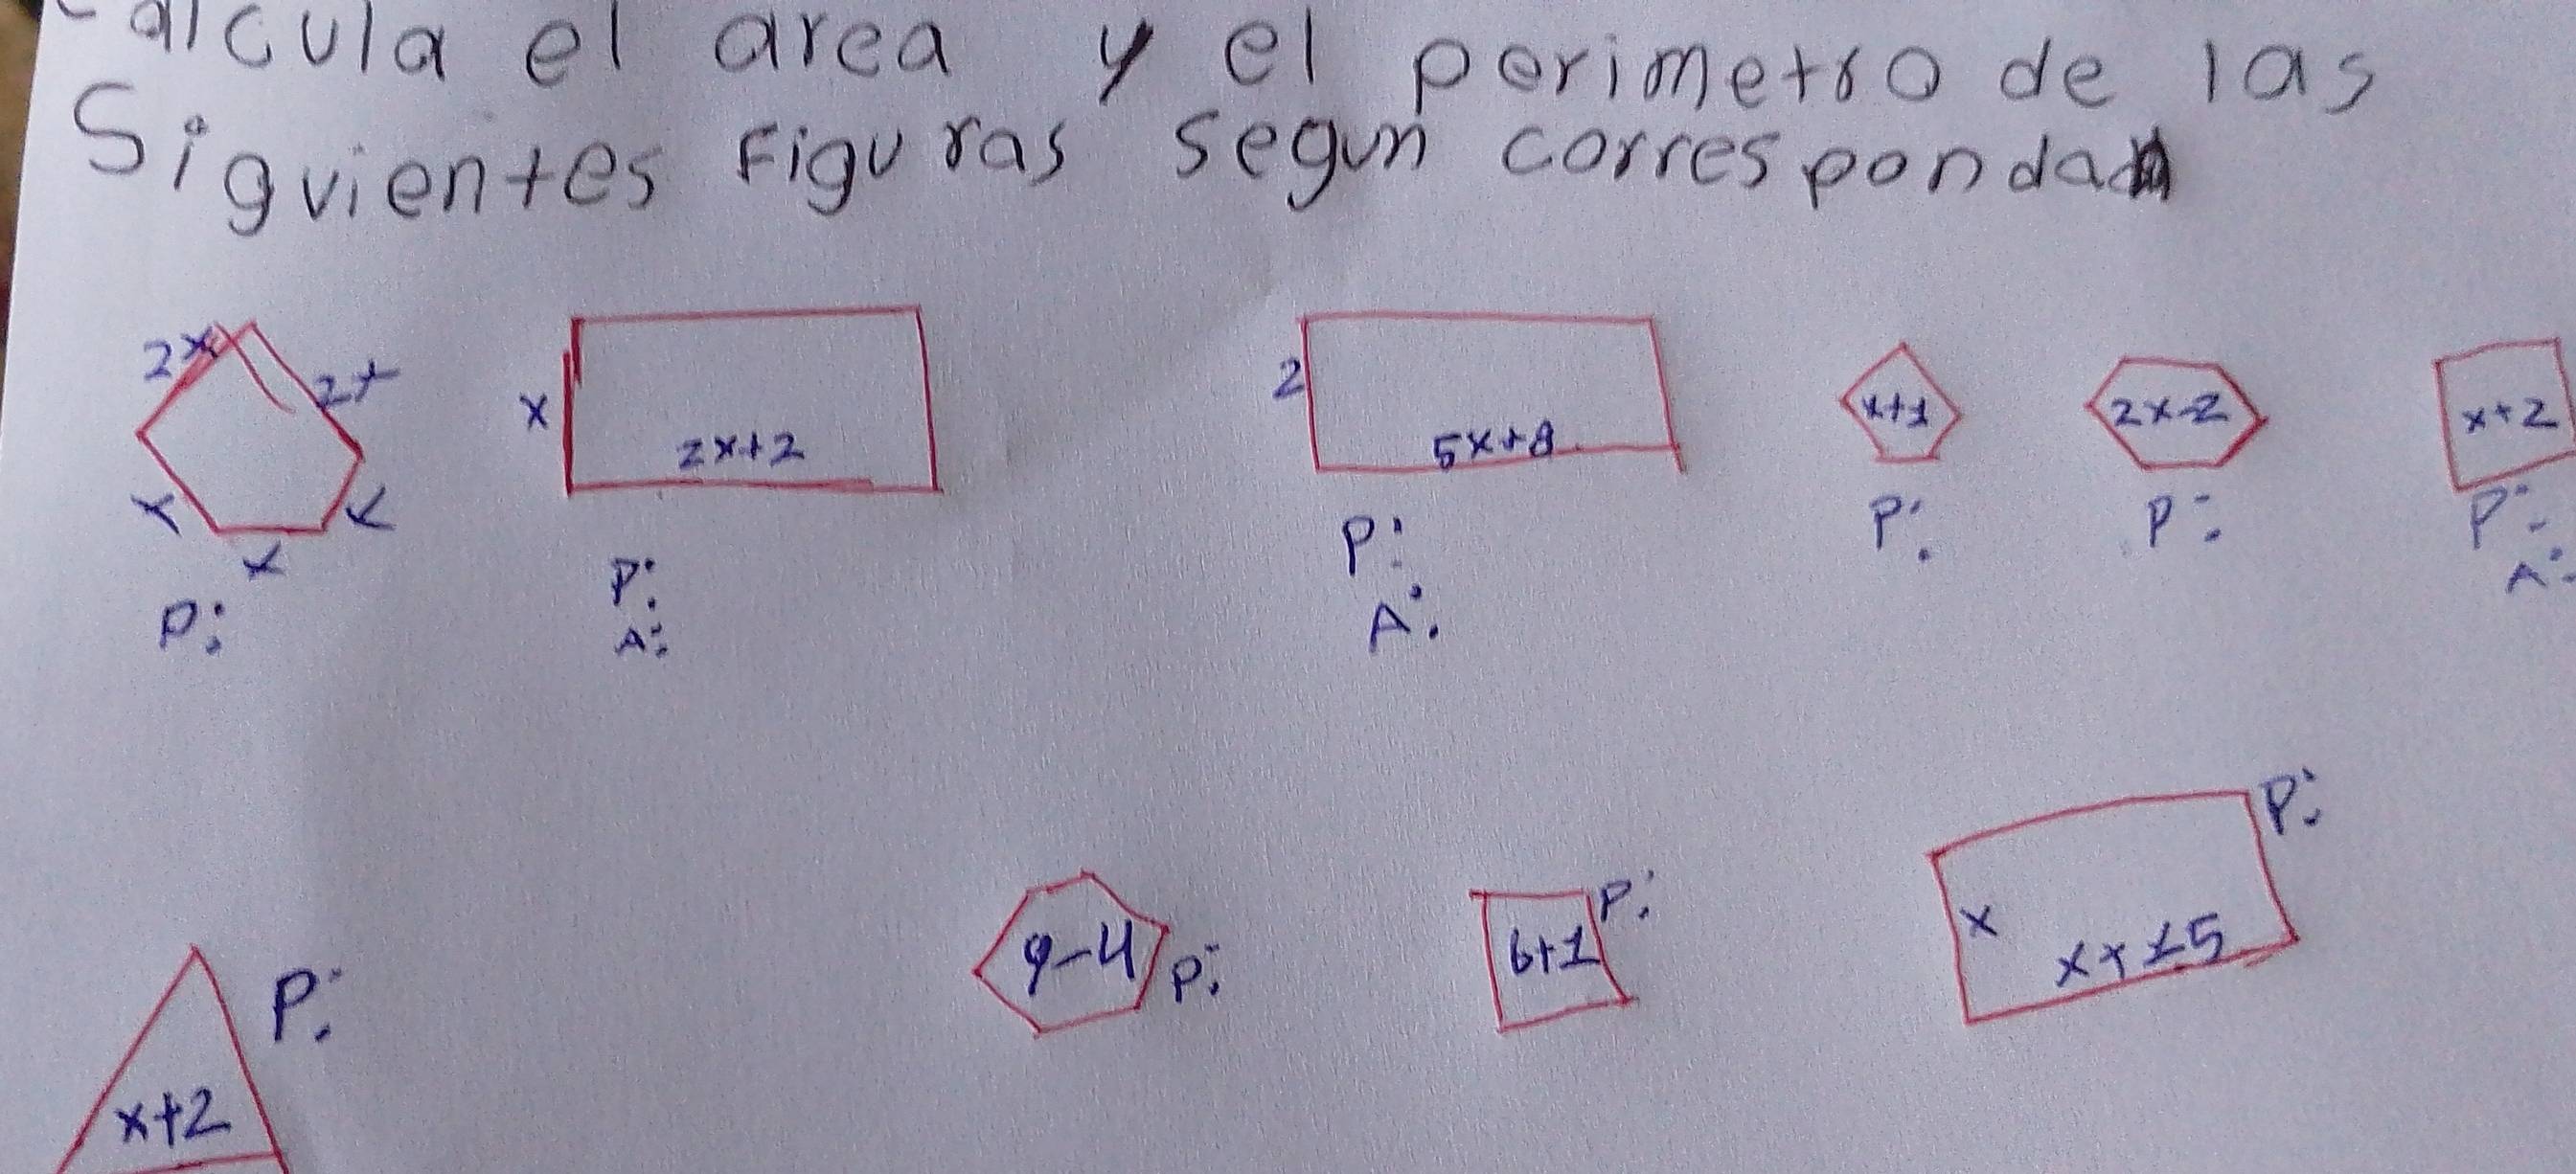 alcula el area y el perimetro de las
Siguientes Figuras segun correspondan
2x
2x
x
x
x
P:
x
2x+2
P:
A:
2
5x+8
P:
A:
x+1
P:
2x-2
P:
x+2
P:
A:
x+2
P:
9-4
P:
6+1
P:
x
x+15
P: